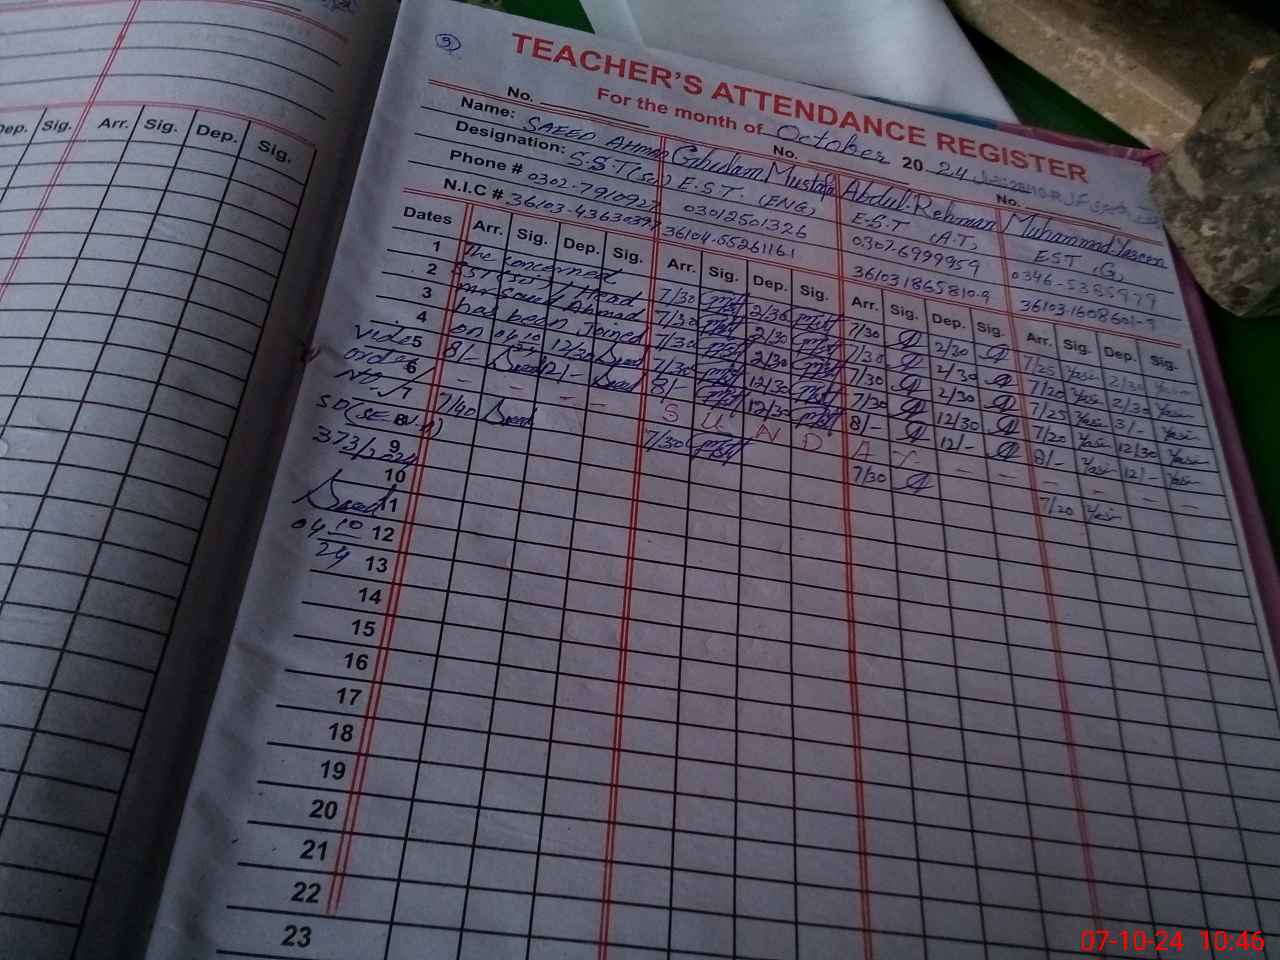 Dep. Sig. Arr. Sig. Dep. Sig.
9
TEACHER'S ATTENDANCE REGISTER
For the month of October 2024
No. No. No.
Name: SAEED AHMAD Ghulam Mustafa Abdul Rehman Muhammad Yaseen
Designation: S.S.T(Sc) E.S.T. (ENG) E.S.T (A.T) EST (G)
Phone # 0302-7910927 03012501326 0307-6999959 0346-5385979
N.I.C # 36104-55261161 361031865810-9 36103-1608601-9
Dates Arr. Sig. Dep. Sig. Arr. Sig. Dep. Sig. Arr. Sig. Dep. Sig. Arr. Sig. Dep. Sig.
1 The concerned 7/30 2/30 7/30 2/30 7/25 2/30
2 SST (SC) / Head 7/30 2/30 7/30 2/30 7/20 2/30
3 Mr Saeed Ahmad 7/30 2/30 7/30 2/30 7/25 3/-
4 has been Joined 7/30 12/30 7/30 12/30 7/20 12/30
on 04-10-24 12/30
5 8/- 12/- 8/- 12/30 8/- 12/- 8/- 12/-
vide
order
6 - - - - S U N D A Y - - - - - -
No. /
7/40 7/30 7/30 7/20
8
SDT(SE
9
373/2024
10
Saeed
11
04 10
24
12
13
14
15
16
17
18
19
20
21
22
23
07-10-24 10:46